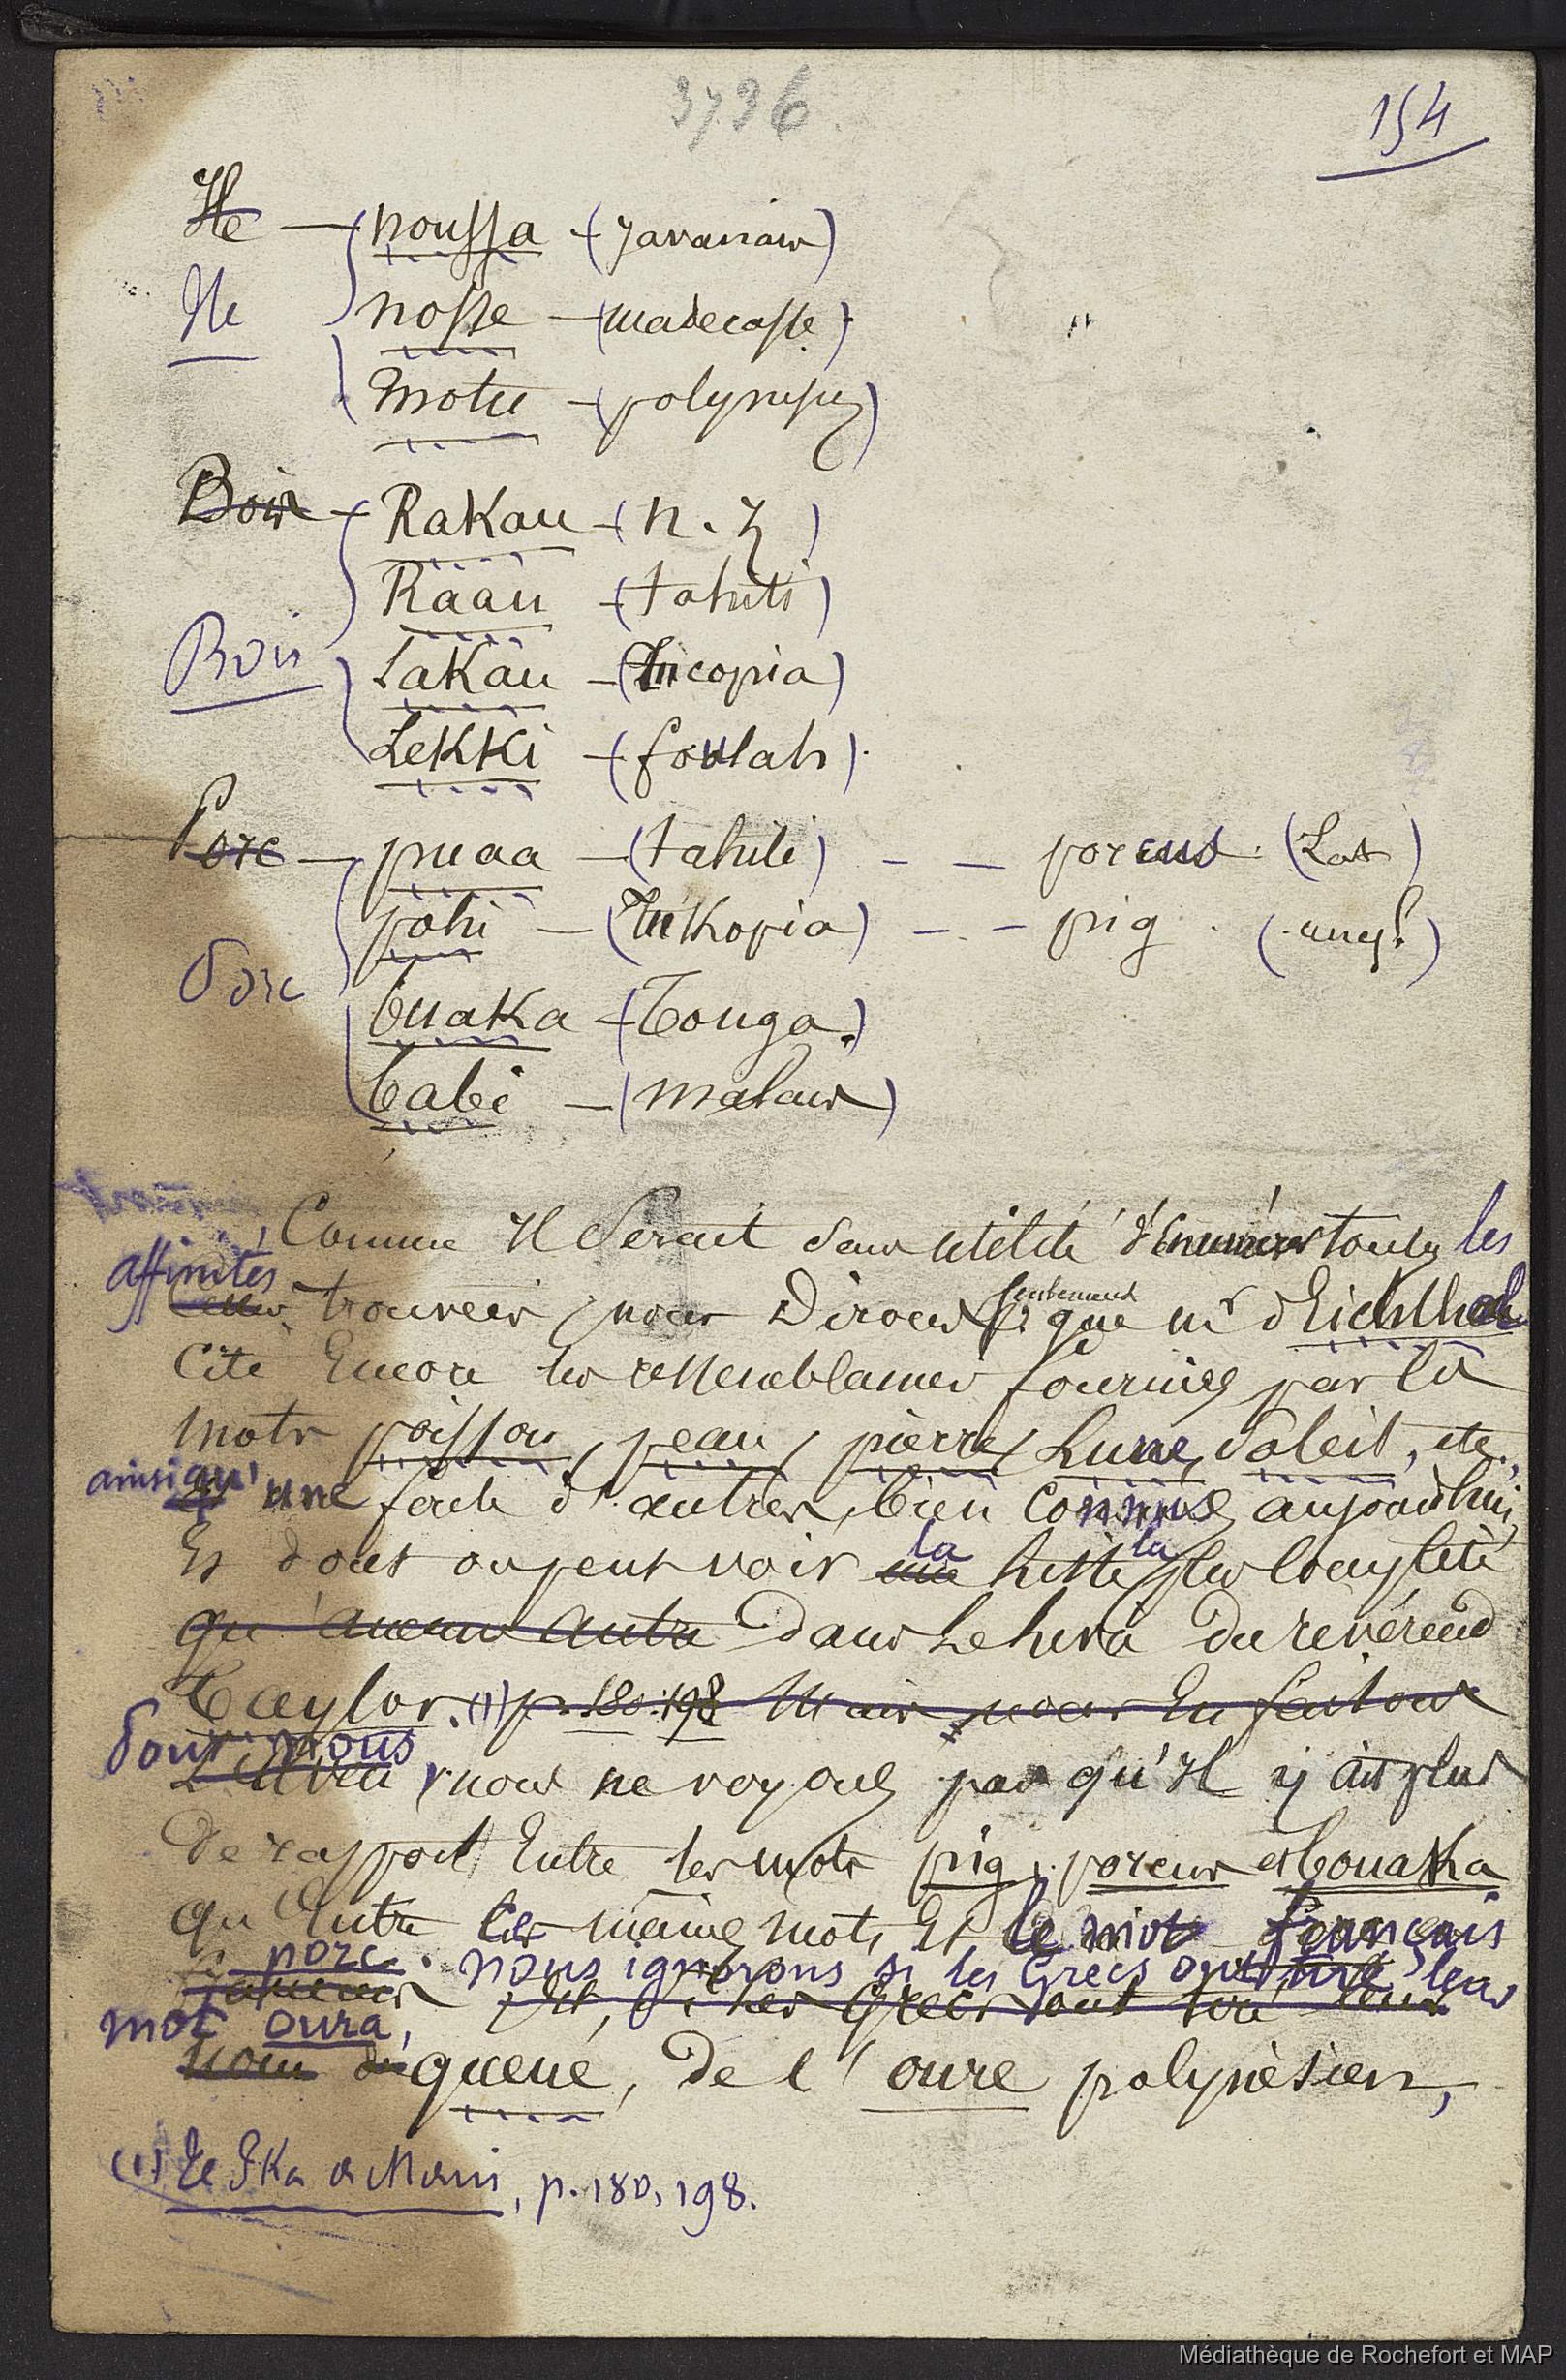 3736
154
Ile — noussa — (Javanais)
Ile
nosse — (madecasse)
motu — (polynésien)
Bois — Rakau — (N. Z)
Raau — (tahiti)
Bois
Lakau — (Tucopia)
Lekki — (foulah)
Porc — puaa — (tahiti) — — porcus. (Lat)
pohi — (Tukopia) — — pig. (angl.)
Porc
Buaka — (Tonga.)
Babi — (malais)
Comme il serait sans utilité d'énumérer toutes les
affinités
celles trouvées, nous dirons seulement que Mr d'Eichthal
cite encore les ressemblances fournies par les
mots poisson, peau, pierre, Lune, Soleil, etc.,
ainsi qu'
une foule d'autres, bien connus aujourd'hui,
Et dont on peut voir la liste la plus complète
qu'aucun autre dans le livre du révérend
Taylor. (1) p. 180.198 Mais nous en faisons
Pour nous
L'aveu, nous ne voyons pas qu'il y ait plus
de rapport entre les mots pig, porcus et Bouaka
qu'entre les mêmes mots et le mot français
porc. Nous ignorons si les Grecs ont tiré leur
Et, si les Grecs ont tiré leur
mot oura,
nom de queue, de l'oure polynésien,
(1) Te Ika a Maui, p. 180, 198.
Médiathèque de Rochefort et MAP